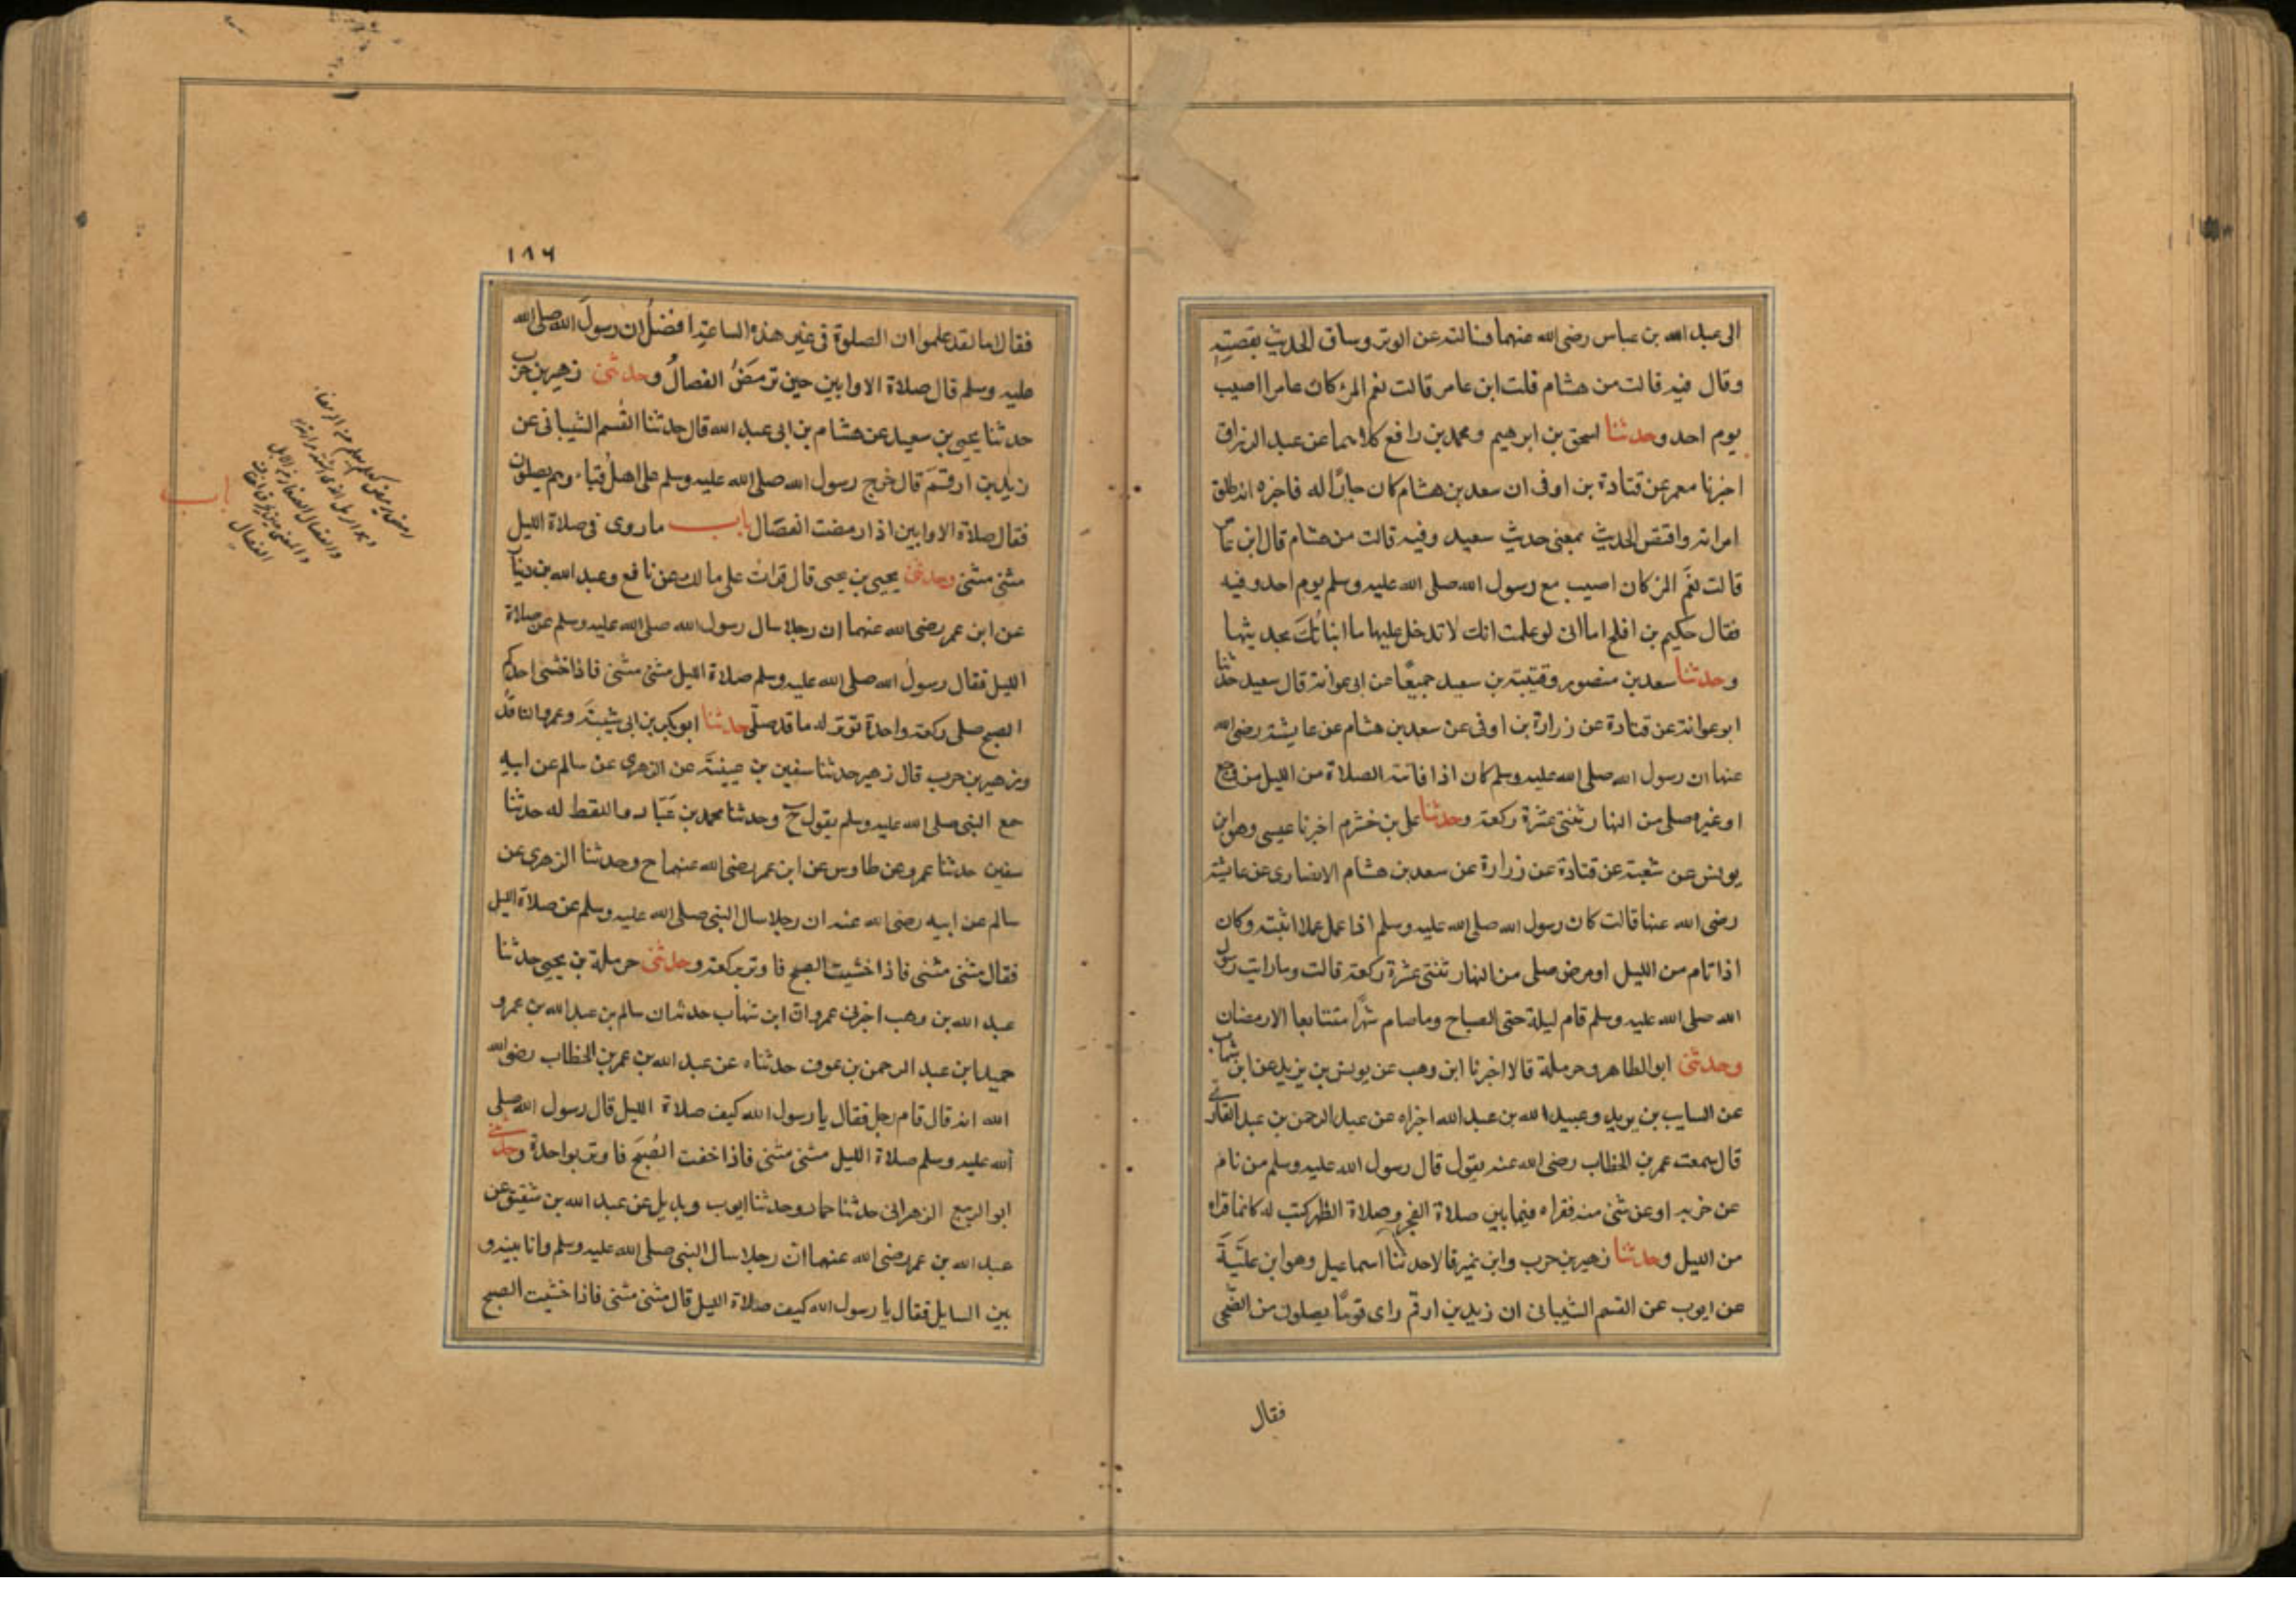 الى عبد الله بن عباس رضى الله عنهما فسالته عن الوتر وساق الحديث بقصته
وقال فيه قالت من هشام قلت ابن عامر قالت نعم المرء كان عامر اصيب
يوم احد وحدثنا اسحق بن ابرهيم ومحمد بن رافع كلاهما عن عبد الرزاق
اخبرنا معمر عن قتادة بن اوفى ان سعد بن هشام كان جارًا له فاخبره انه طلق
امراته واقتص الحديث بمعنى حديث سعيد وفيه قالت من هشام قال ابن عامر
قالت نعم المرء كان اصيب مع رسول الله صلى الله عليه وسلم يوم احد وفيه
فقال حكيم بن افلح اما انى لو علمت انك لا تدخل عليها ما انباتك بحديثها
وحدثنا سعد بن منصور وقتيبة بن سعيد جميعًا عن ابى عوانة قال سعيد حدثنا
ابو عوانة عن قتادة عن زرارة بن اوفى عن سعد بن هشام عن عايشة رضى الله
عنها ان رسول الله صلى الله عليه وسلم كان اذا فاتته الصلاة من الليل من وجع
او غيره صلى من النهار ثنتى عشرة ركعة وحدثنا على بن خشرم اخبرنا عيسى وهو ابن
يونس عن شعبة عن قتادة عن زرارة عن سعد بن هشام الانصارى عن عايشة
رضى الله عنها قالت كان رسول الله صلى الله عليه وسلم اذا عمل عملا اثبته وكان
اذا نام من الليل او مرض صلى من النهار ثنتى عشرة ركعة قالت وما رايت رسول
الله صلى الله عليه وسلم قام ليلة حتى الصباح وما صام شهرًا متتابعا الا رمضان
وحدثنى ابو الطاهر وحرملة قالا اخبرنا ابن وهب عن يونس بن يزيد عن ابن شهاب
عن السايب بن يزيد وعبيد الله بن عبد الله اخبراه عن عبد الرحمن بن عبد القارى
قال سمعت عمر بن الخطاب رضى الله عنه يقول قال رسول الله عليه وسلم من نام
عن حزبه او عن شئ منه فقراه فيما بين صلاة الفجر وصلاة الظهر كتب له كانما قراه
من الليل وحدثنا زهير بن حرب وابن نمير قالا حدثنا اسماعيل وهو ابن علية
عن ايوب عن القسم الشيبانى ان زيد بن ارقم راى قومًا يصلون من الضحى
فقال
١٨٦
فقال اما لقد علموا ان الصلوة فى غير هذه الساعة افضل ان رسول الله صلى الله
عليه وسلم قال صلاة الاوابين حين ترمض الفصال وحدثنى زهير بن حرب
حدثنا يحيى بن سعيد عن هشام بن ابى عبد الله قال حدثنا القسم الشيبانى عن
زيد بن ارقم قال خرج رسول الله صلى الله عليه وسلم على اهل قباء وهم يصلون
فقال صلاة الاوابين اذا رمضت الفصال باب ما روى فى صلاة الليل
مثنى مثنى وحدثنى يحيى بن يحيى قال قرات على مالك عن نافع وعبد الله بن دينار
عن ابن عمر رضى الله عنهما ان رجلا سال رسول الله صلى الله عليه وسلم عن صلاة
الليل فقال رسول الله صلى الله عليه وسلم صلاة الليل مثنى مثنى فاذا خشى احدكم
الصبح صلى ركعة واحدة توتر له ما قد صلى حدثنا ابو بكر بن ابى شيبة وعمرو الناقد
وزهير بن حرب قال زهير حدثنا سفين بن عيينة عن الزهرى عن سالم عن ابيه
مع النبى صلى الله عليه وسلم يقول ح وحدثنا محمد بن عباد واللفظ له حدثنا
سفين حدثنا عمرو عن طاوس عن ابن عمر رضى الله عنهما ح وحدثنا الزهرى عن
سالم عن ابيه رضى الله عنه ان رجلا سال النبى صلى الله عليه وسلم عن صلاة الليل
فقال مثنى مثنى فاذا خشيت الصبح فاوتر بركعة وحدثنى حرملة بن يحيى حدثنا
عبد الله بن وهب اخبرنى عمرو ان ابن شهاب حدثه ان سالم بن عبد الله بن عمر و
حميد ابن عبد الرحمن بن عوف حدثناه عن عبد الله بن عمر بن الخطاب رضى الله
الله انه قال قام رجل فقال يا رسول الله كيف صلاة الليل قال رسول الله صلى
الله عليه وسلم صلاة الليل مثنى مثنى فاذا خفت الصبح فاوتر بواحدة وحدثنى
ابو الربيع الزهرانى حدثنا حماد وحدثنا ايوب وبديل عن عبد الله بن شقيق عن
عبد الله بن عمر رضى الله عنهما ان رجلا سال النبى صلى الله عليه وسلم وانا بينه و
بين السايل فقال يا رسول الله كيف صلاة الليل قال مثنى مثنى فاذا خشيت الصبح
باب
الفصال